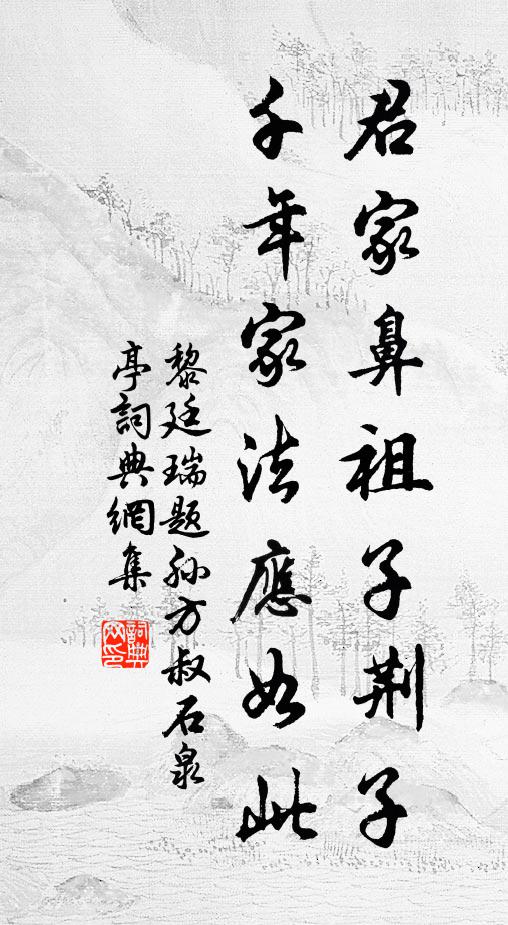 君家鼻祖子荆子
千年家法應如此
黎廷瑞題孙方叔石泉
亭詞典網集
詞典网印